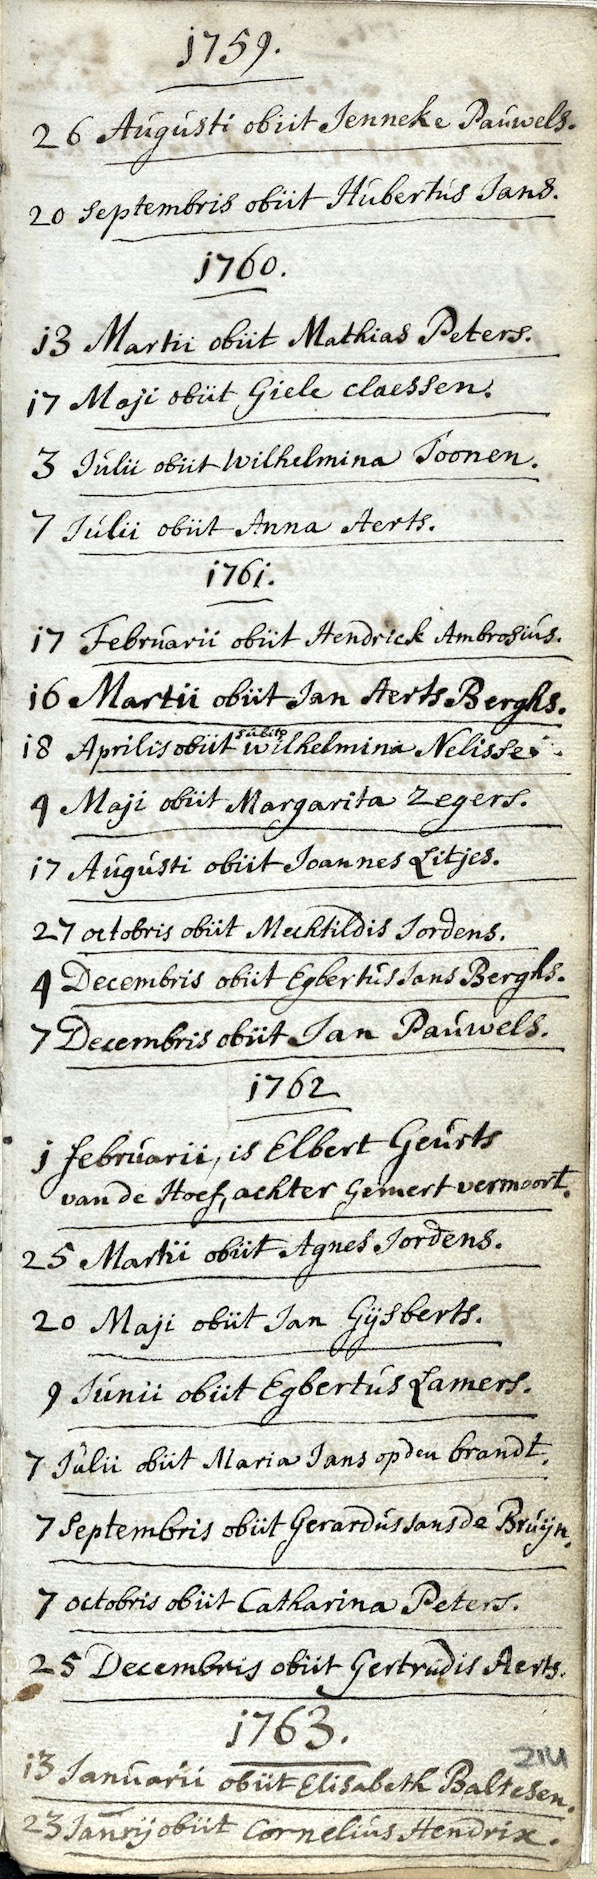 1759.
26 Augusti obiit Jenneke Pauwels.
20 Septembris obiit Hubertus Jans.
1760.
13 Martii obiit Mathias Peters.
17 Maji obiit Giele Claessen.
3 Julii obiit Wilhelmina Toonen.
7 Julii obiit Anna Aerts.
1761.
17 Februarii obiit Hendrick Ambrosius.
16 Martii obiit Jan Aerts Berghs.
18 Aprilis obiit subito Wilhelmina Nelisse
4 Maji obiit Margarita Zegers.
17 Augusti obiit Joannes Litjes.
27 octobris obiit Mechtildis Jordens.
4 Decembris obiit Egbertus Jans Berghs.
7 Decembris obiit Jan Pauwels.
1762
1 februarii, is Elbert Geurts
van de Hoef, achter Gemert vermoort.
25 Martii obiit Agnes Jordens.
20 Maji obiit Jan Gijsberts.
9 Junii obiit Egbertus Lamers.
7 Julii obiit Maria Jans op den brandt.
7 Septembris obiit Gerardus Jans de Bruijn.
7 octobris obiit Catharina Peters.
25 Decembris obiit Gertrudis Aerts.
1763.
214
13 Januarii obiit Elisabeth Baltesen.
23 Janrij obiit Cornelius Hendrix.